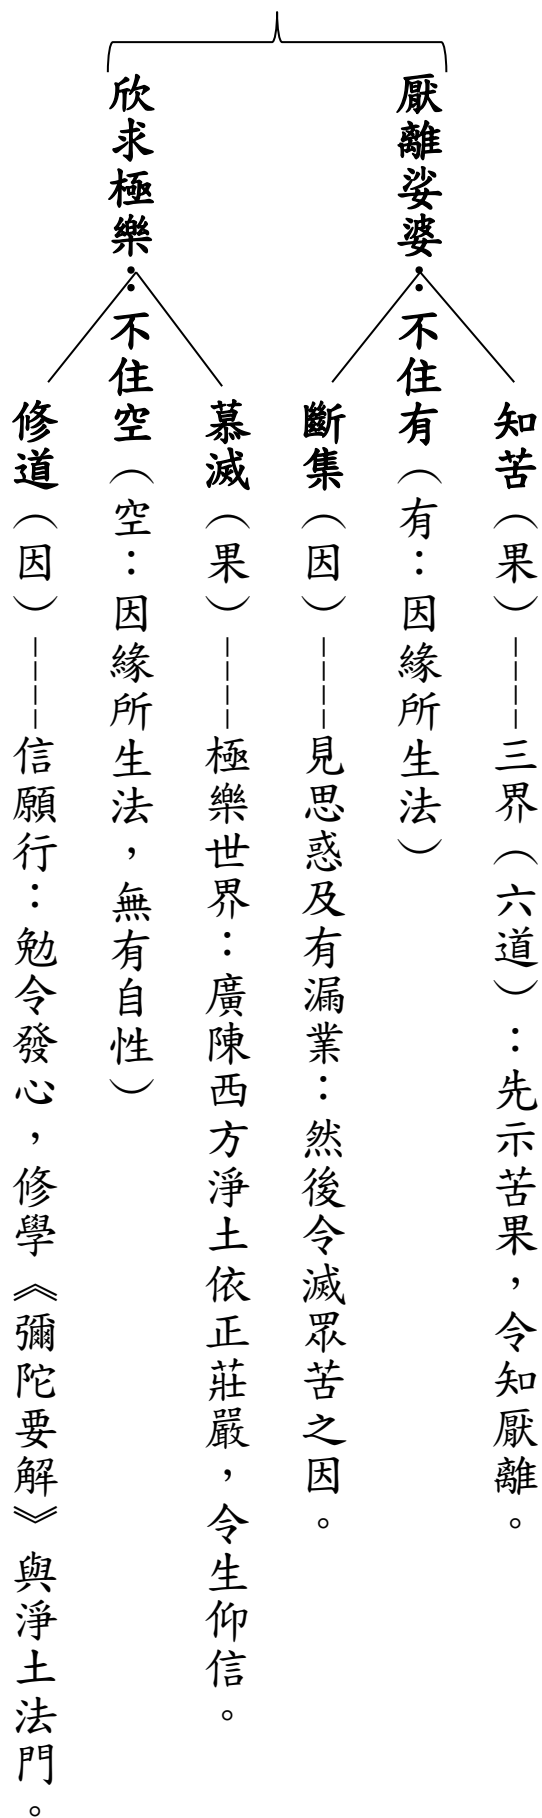 知苦（果）----三界（六道）：先示苦果，令知厭離。
厭離娑婆：不住有（有：因緣所生法）
斷集（因）----見思惑及有漏業：然後令滅眾苦之因。
慕滅（果）----極樂世界：廣陳西方淨土依正莊嚴，令生仰信。
欣求極樂：不住空（空：因緣所生法，無有自性）
修道（因）----信願行：勉令發心，修學《彌陀要解》與淨土法門。